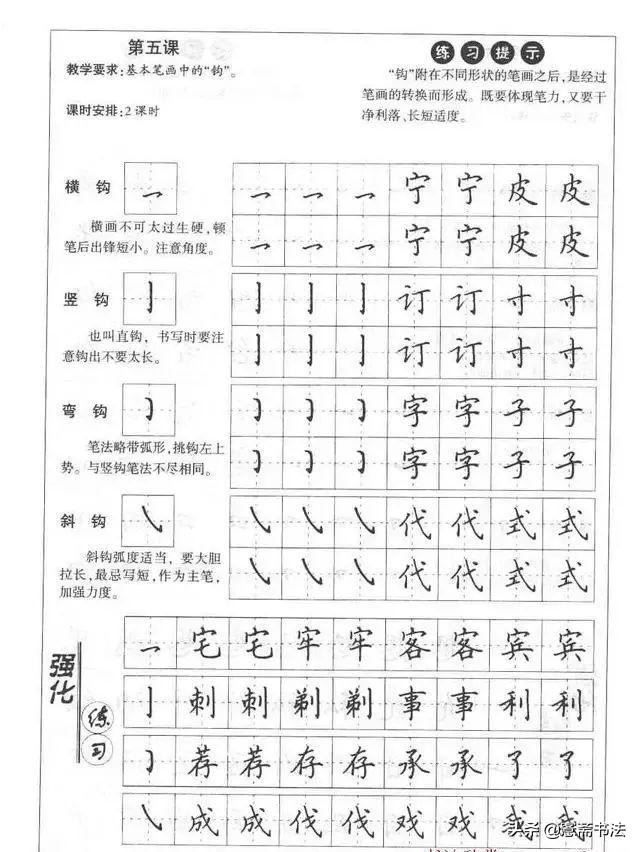 第五课
教学要求:基本笔画中的“钩”。
课时安排:2课时
练习提示
“钩”附在不同形状的笔画之后,是经过
笔画的转换而形成。既要体现笔力,又要干
净利落、长短适度。
横 钩
横画不可太过生硬,顿
笔后出锋短小。注意角度。
宁 宁 皮 皮
宁 宁 皮 皮
竖 钩
也叫直钩,书写时要注
意钩出不要太长。
订 订 寸 寸
订 订 寸 寸
弯 钩
笔法略带弧形,挑钩左上
势。与竖钩笔法不尽相同。
字 字 子 子
字 字 子 子
斜 钩
斜钩弧度适当,要大胆
拉长,最忌写短,作为主笔,
加强力度。
代 代 式 式
代 代 式 式
强化
练习
宅 宅 牢 牢 客 客 宾 宾
刺 刺 剃 剃 事 事 利 利
荐 荐 存 存 承 承 了 了
成 成 伐 伐 戏 戏 或 或